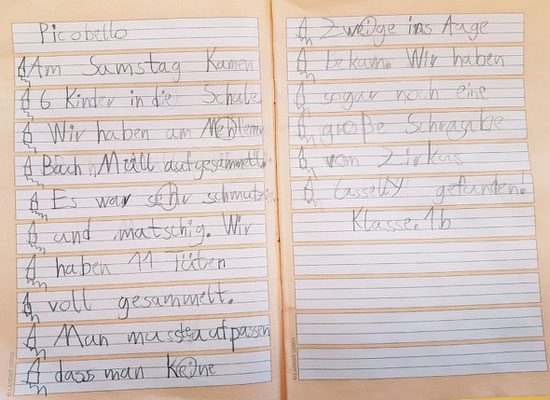 Picobello
Am Samstag Kamen
6 Kinder in die Schule
Wir haben am
Bach Müll aufgesammelt.
Es war sehr schmutzig
und matschig. Wir
haben 11 Tüten
voll gesammelt.
Man musste aufpassen
dass man Keine
Zweige ins Auge
bekam. Wir haben
sogar noch eine
große Schraube
vom Zirkus
Casselly gefunden!
Klasse. 1b